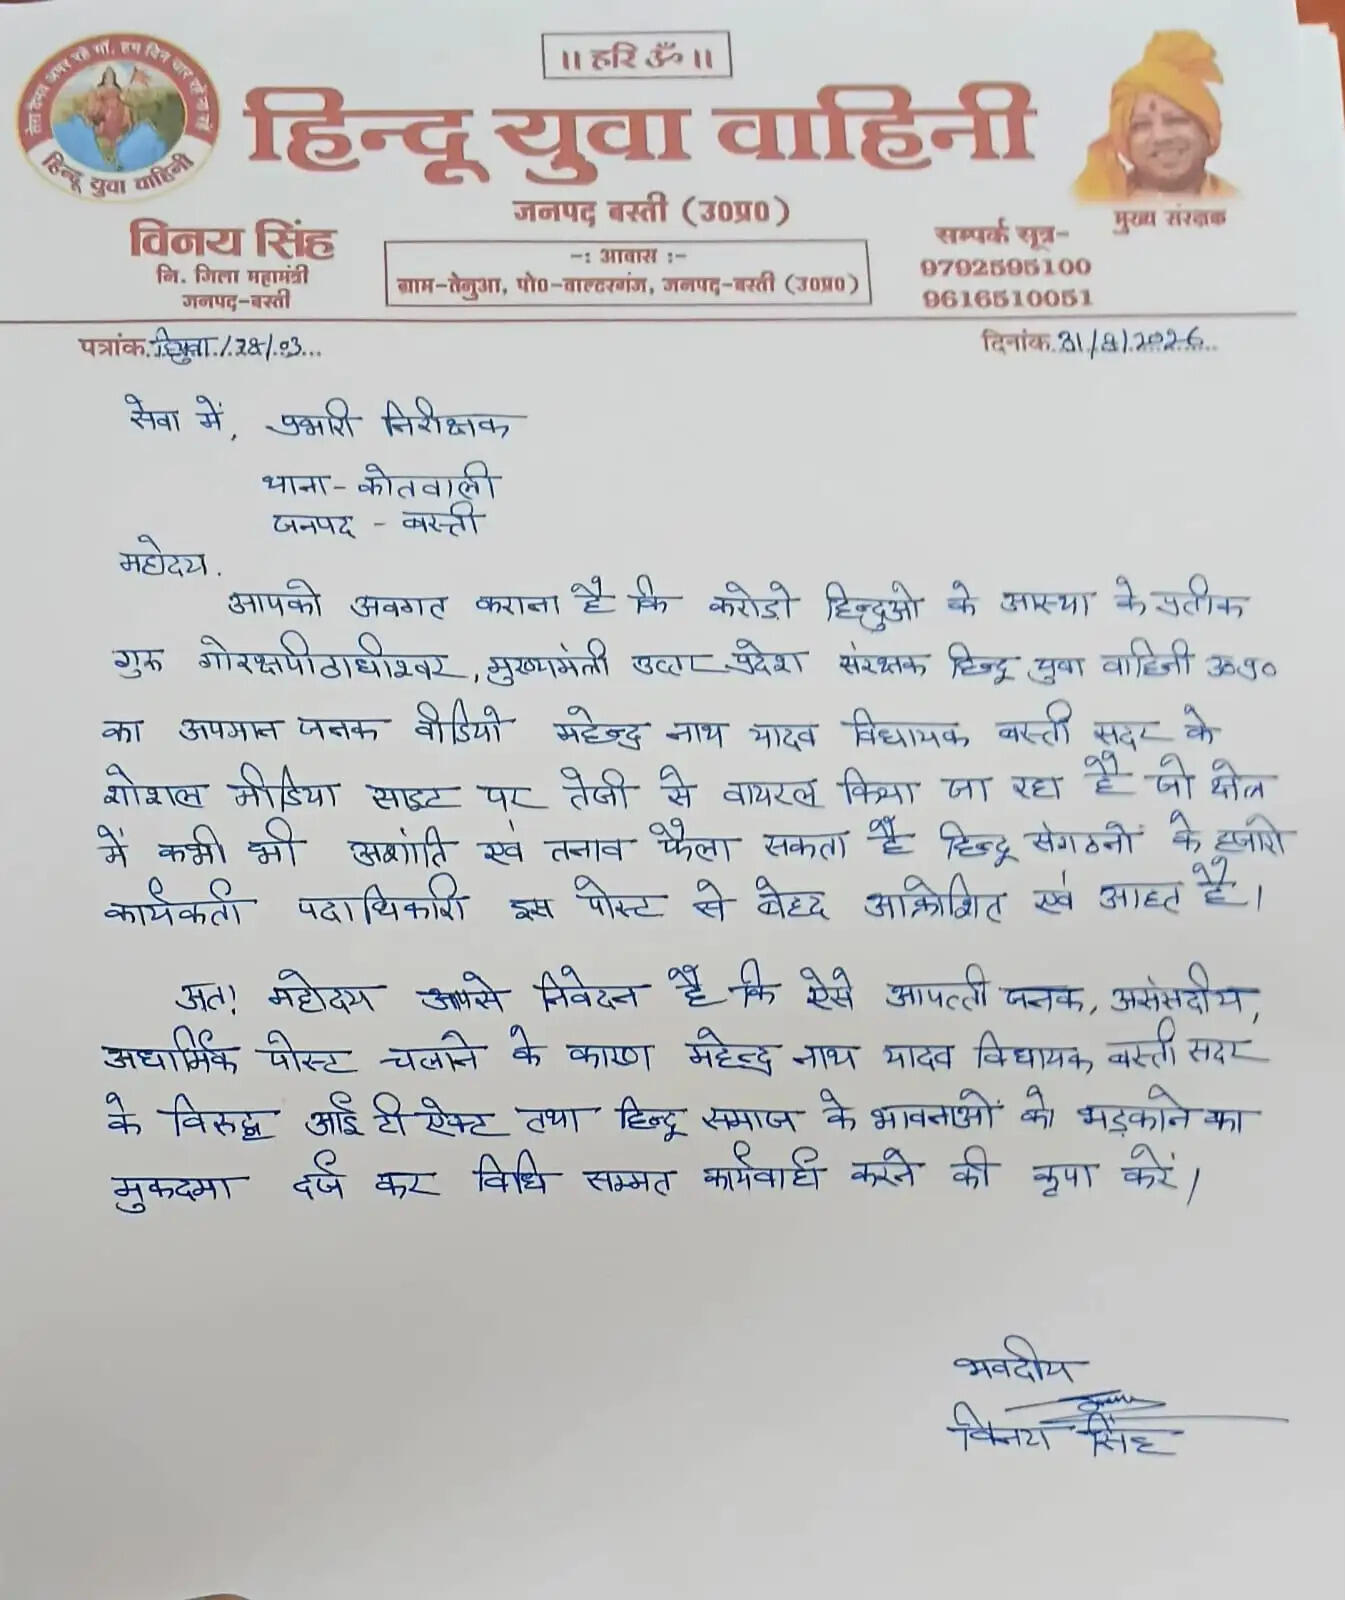 ॥ हरि ॐ ॥
हिन्दू युवा वाहिनी
हिन्दू युवा वाहिनी
जनपद बस्ती (उ0प्र0)
मुख्य संरक्षक
विनय सिंह
नि. जिला महामंत्री
जनपद-बस्ती
-: आवास :-
ग्राम-तेनुआ, पो0-वाल्टरगंज, जनपद-बस्ती (उ0प्र0)
सम्पर्क सूत्र-
9792595100
9616510051
पत्रांक. हियुवा./78/.03...
दिनांक. 31/8/.2026
सेवा में, प्रभारी निरीक्षक
थाना - कोतवाली
जनपद - बस्ती
महोदय.
आपको अवगत कराना है कि करोडो हिन्दुओ के आस्था के प्रतीक
गुरू गोरक्षपीठाधीश्वर, मुख्यमंत्री उत्तर प्रदेश संरक्षक हिन्दू युवा वाहिनी उ०प्र०
का अपमान जनक वीडियो महेन्द्र नाथ यादव विधायक बस्ती सदर के
शोशल मीडिया साइट पर तेजी से वायरल किया जा रहा है जो क्षेत्र
में कभी भी अशांति एवं तनाव फैला सकता है हिन्दू संगठनों के हजारो
कार्यकर्ता पदाधिकारी इस पोस्ट से बेहद आक्रोशित एवं आहत है।
अत! महोदय आपसे निवेदन है कि ऐसे आपत्ती जनक, असंसदीय,
अधार्मिक पोस्ट चलाने के कारण महेन्द्र नाथ यादव विधायक बस्ती सदर
के विरुद्ध आई टी ऐक्ट तथा हिन्दू समाज के भावनाओं को भड़काने का
मुकदमा दर्ज कर विधि सम्मत कार्यवाही करने की कृपा करें।
भवदीय
विनय सिंह